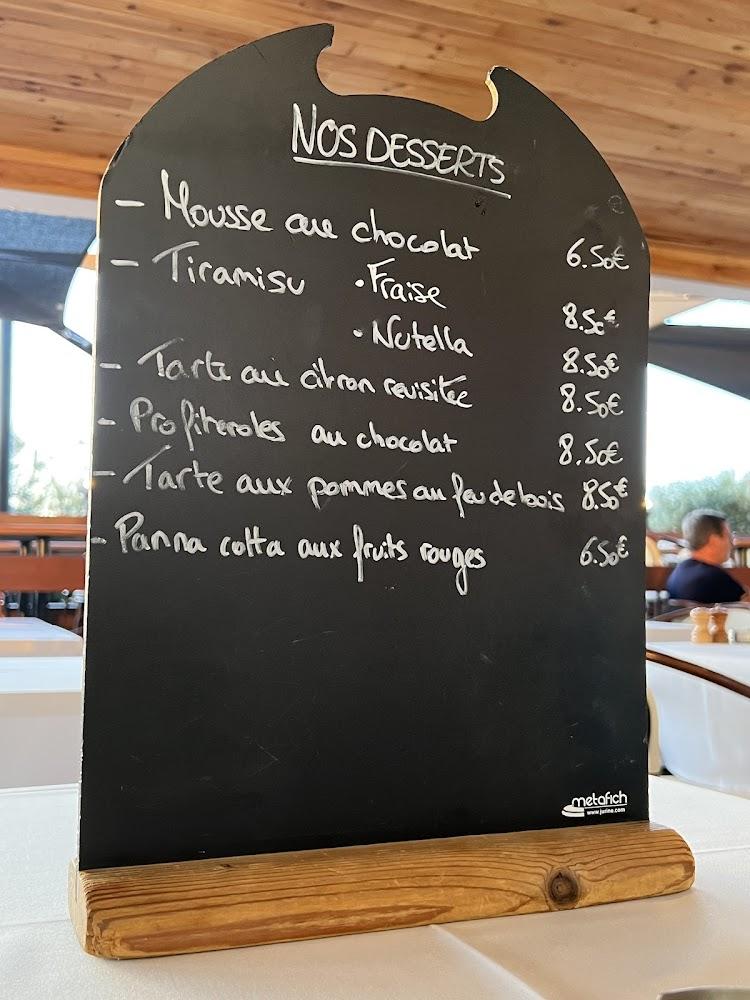 NOS DESSERTS
- Mousse au chocolat 6.50€
- Tiramisu • Fraise 8.50€
• Nutella 8.50€
- Tarte au citron revisitée 8.50€
- Profiteroles au chocolat 8.50€
- Tarte aux pommes au feu de bois 8.50€
- Panna cotta aux fruits rouges 6.50€
metafich
www.jurine.com